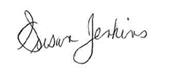 Susan Jenkins